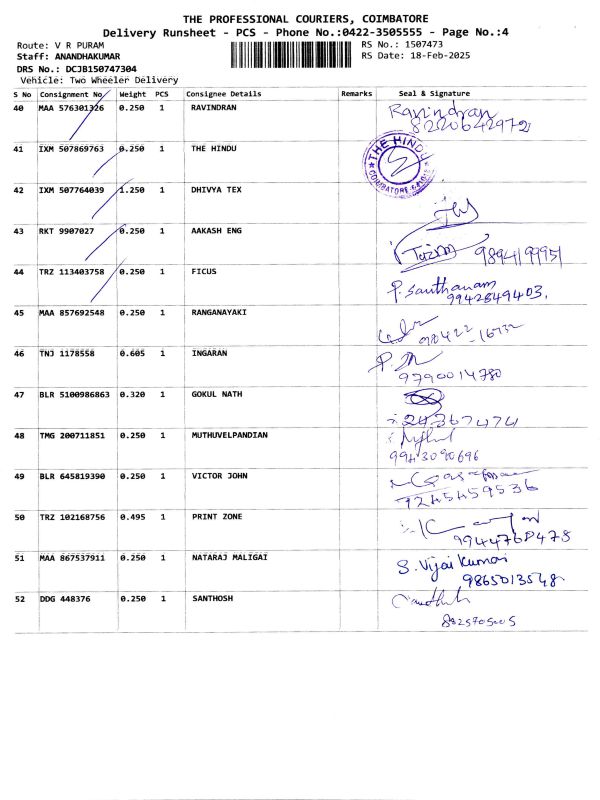 THE PROFESSIONAL COURIERS, COIMBATORE
Delivery Runsheet - PCS - Phone No.:0422-3505555 - Page No.:4
Route: V R PURAM
RS No.: 1507473
Staff: ANANDHAKUMAR
RS Date: 18-Feb-2025
DRS No.: DCJB150747304
Vehicle: Two Wheeler Delivery
S No Consignment No Weight PCS Consignee Details Remarks Seal & Signature
40 MAA 576301326 0.250 1 RAVINDRAN Ravindran
8220642972
41 IXM 507869763 0.250 1 THE HINDU THE HINDU
COIMBATORE
42 IXM 507764039 1.250 1 DHIVYA TEX
43 RKT 9907027 0.250 1 AAKASH ENG
44 TRZ 113403758 0.250 1 FICUS P. Santhanam
9942849403.
45 MAA 857692548 0.250 1 RANGANAYAKI
46 TNJ 1178558 0.605 1 INGARAN
9790014780
47 BLR 5100986863 0.320 1 GOKUL NATH
48 TMG 200711851 0.250 1 MUTHUVELPANDIAN
9943090696
49 BLR 645819390 0.250 1 VICTOR JOHN
7245459536
50 TRZ 102168756 0.495 1 PRINT ZONE
51 MAA 867537911 0.250 1 NATARAJ MALIGAI S. Vijai Kumar
9865013548
52 DDG 448376 0.250 1 SANTHOSH